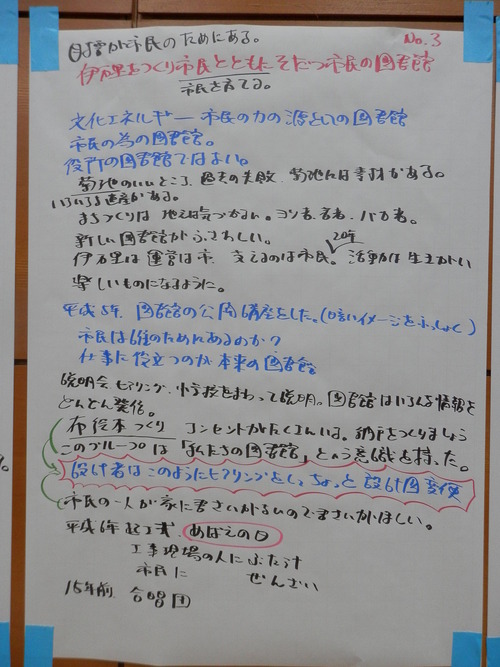 No.3
図書館が市民のためにある。
伊万里をつくり市民とともにそだつ市民の図書館
市民を育てる。
文化エネルギー 市民の力の源としての図書館
市民の為の図書館。
役所の図書館ではない。
菊池のいいところ、過去の失敗、菊池には素材がある。
いろいろな遺産がある。
まちづくりは 地元は気づかない。ヨソ者、若者、バカ者。
新しい図書館がふさわしい。
20年
伊万里は 運営は市、支えるのは市民。活動は生きがい
楽しいものになるように。
平成5年、図書館の公開講座をした。(暗いイメージをふっしょく)
市民は誰のためにあるのか?
仕事に役立つのが本来の図書館
説明会 ヒアリング、小学校をまわって説明。図書館はいろんな情報を
どんどん発信。
布絵本づくり コンセントがたくさんいる。納戸をつくりましょう
このグループは「私たちの図書館」という意識を持った。
設計者はこのようにヒアリングをしてちょっと設計図変更
市民の一人が家に書さいがないので書さいがほしい。
平成6年起工式、めばえの日
工事現場の人にぶた汁
市民に ぜんざい
15年前、合唱団